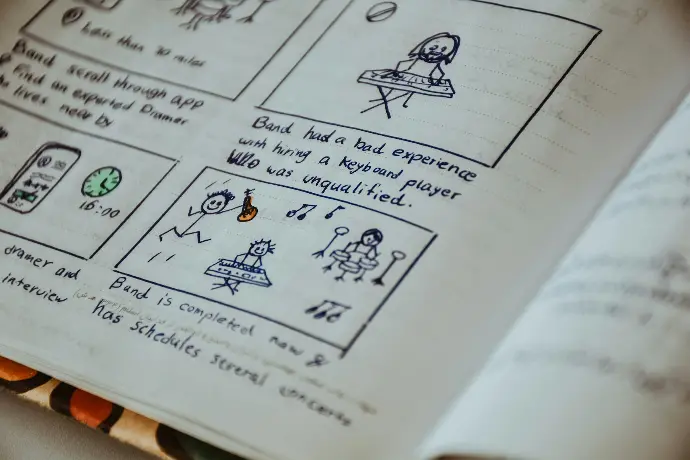 less than 30 miles
Band scroll through app
Find an experted Dramer
lives near by
Band had a bad experience
with hiring a keyboard player
who was unqualified.
16:00
dramer and
interview
Band is completed now &
has schedules several concerts